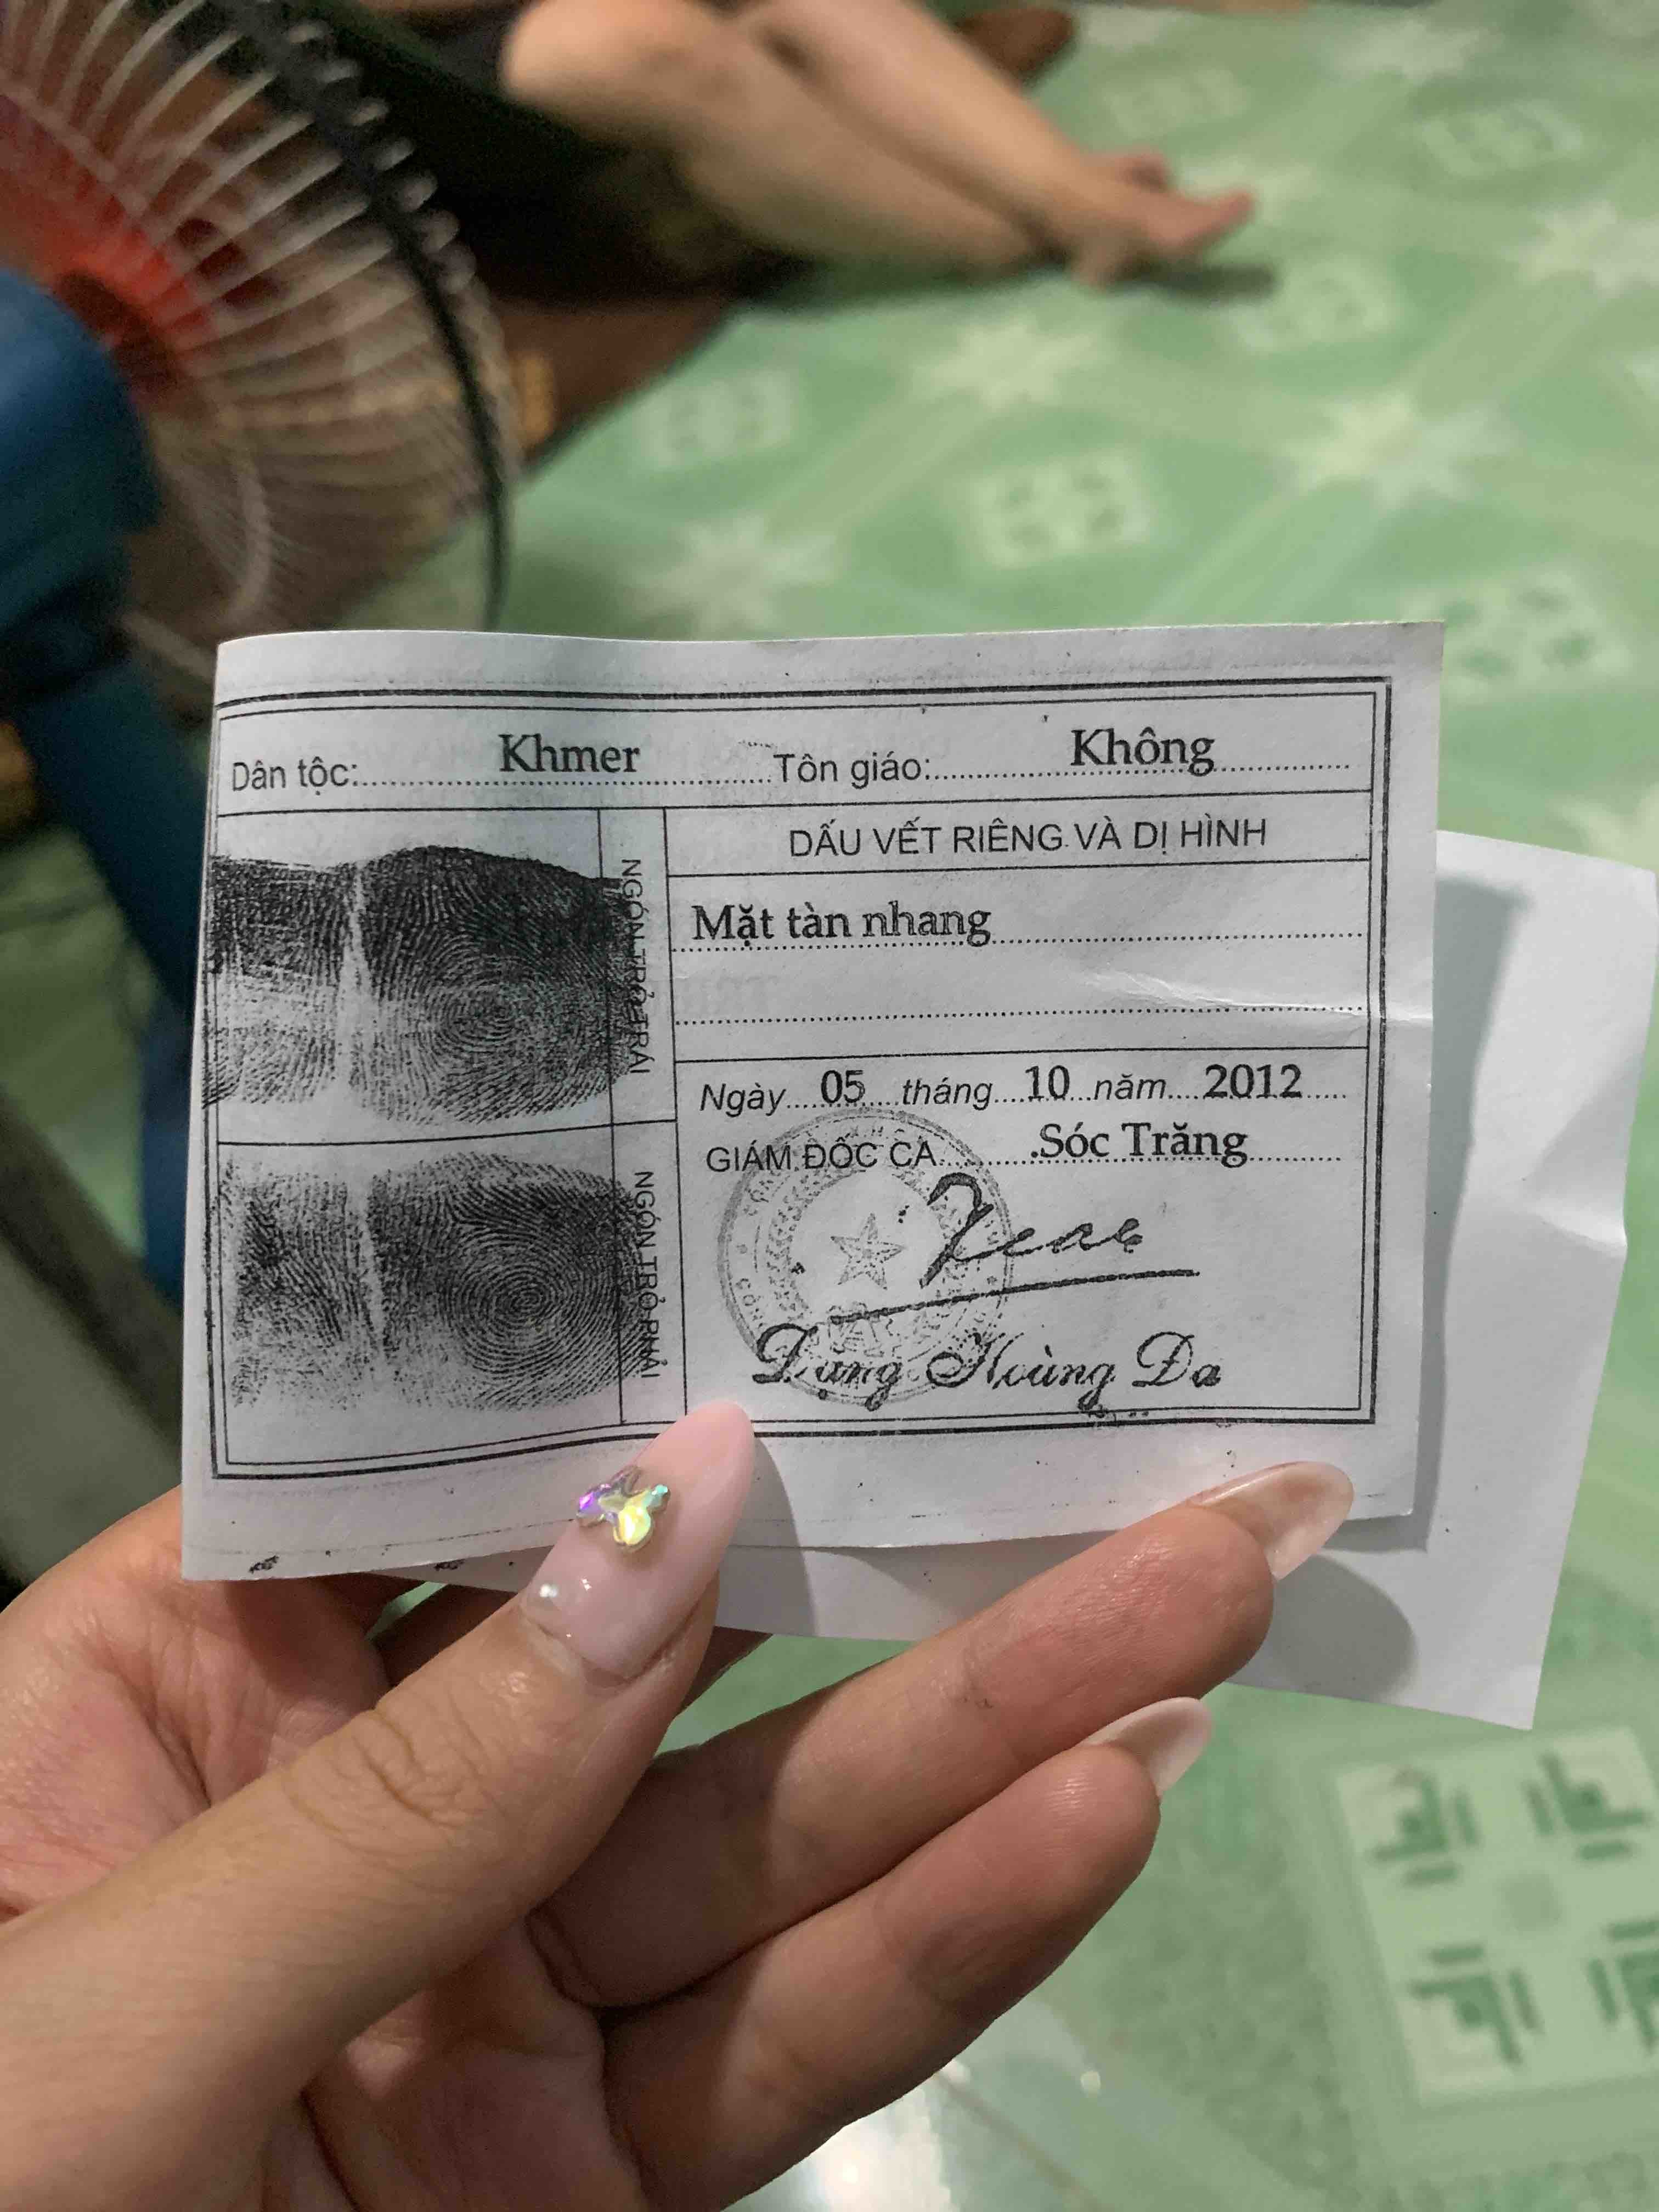 Dân tộc: Khmer Tôn giáo: Không
DẤU VẾT RIÊNG VÀ DỊ HÌNH
NGÓN TRỎ TRÁI
Mặt tàn nhang
Ngày 05 tháng 10 năm 2012
GIÁM ĐỐC CA Sóc Trăng
NGÓN TRỎ PHẢI
Đặng Hoàng Đa